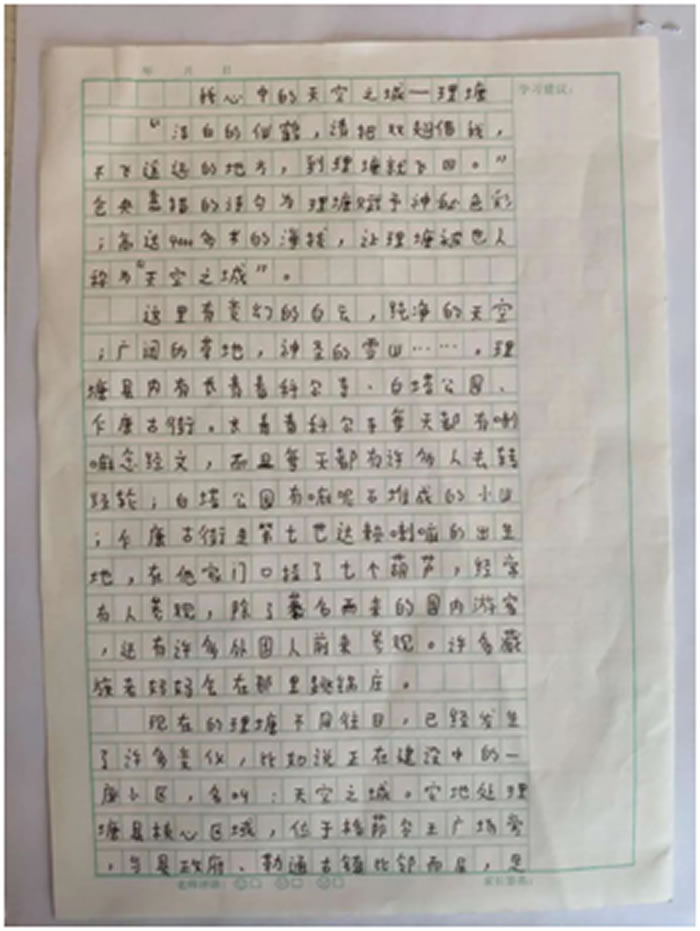 年 月 日
学习建议：
我心中的天空之城—理塘
“洁白的仙鹤，请把双翅借我，
不飞遥远的地方，到理塘就飞回。”
仓央嘉措的诗句为理塘赋予神秘色彩
；高达4000多米的海拔，让理塘被世人
称为“天空之城”。
这里有变幻的白云，纯净的天空
；广阔的草地，神圣的雪山……。理
塘县内有长青春科尔寺、白塔公园、
仁康古街。长青春科尔寺每天都有喇
嘛念经文，而且每天都有许多人去转
经轮；白塔公园有嘛呢石堆成的小山
；仁康古街是第七世达赖喇嘛的出生
地，在他家门口挂了七个葫芦，经常
有人参观，除了慕名而来的国内游客
，还有许多外国人前来参观。许多藏
族老妈妈会在那里跳锅庄。
现在的理塘不同往日，已经发生
了许多变化，比如说正在建设中的一
座小区，名叫：天空之城。它地处理
塘县核心区域，位于格萨尔王广场旁
，与县政府、勒通古镇比邻而居，是
老师评语： 家长签名：